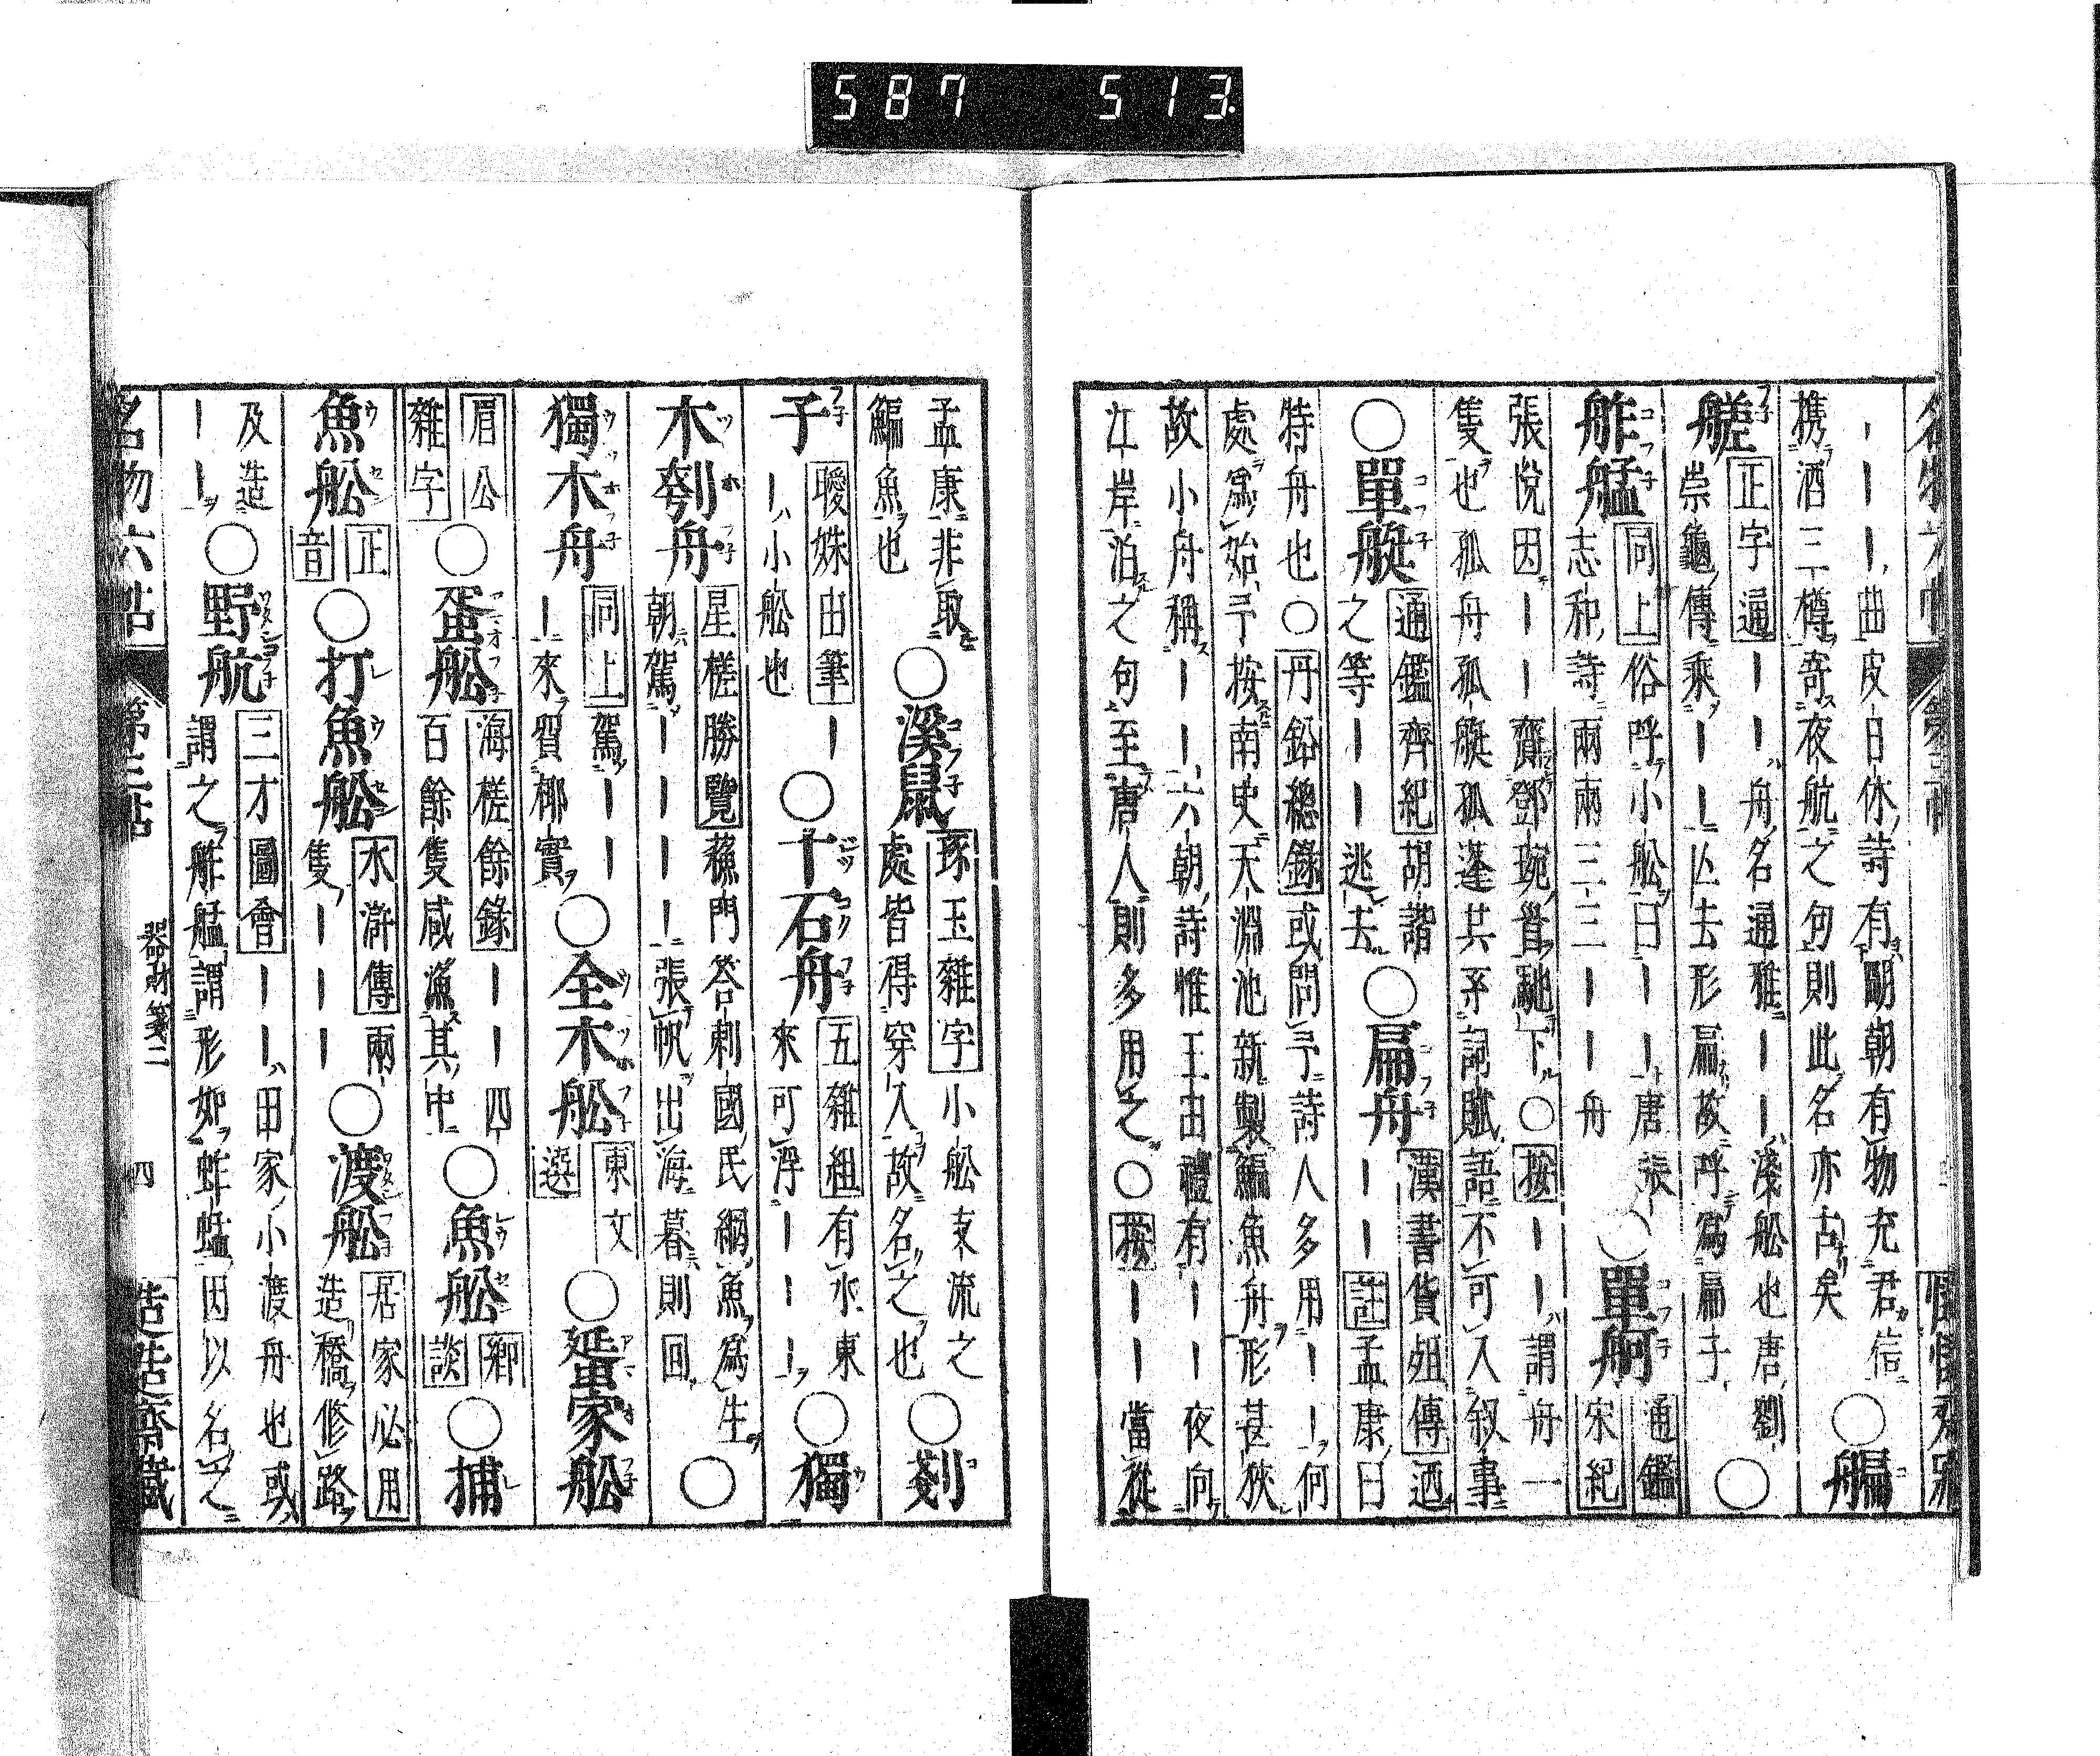 587 513.
｜｜｜曲皮日休詩有明朝有物充君信
携酒三樽寄夜航之句則此名亦古矣 ○艑
艖 正字通｜｜舟名通雅｜｜淺船也唐劉
崇龜傳乘｜｜亾去形扁故呼爲扁子 ○
舴艋 同上俗呼小船曰｜｜唐張
志和詩兩兩三三｜｜舟 ○單舸 通鑑宋紀
張悅因｜｜齎鄧琬首馳下○按｜｜謂舟一
隻也孤舟孤艇孤蓬共系詞賦語不可入叙事
○單艇 通鑑齊紀胡諧
之等｜｜逃去 ○扁舟 漢書貨殂傳迺
｜｜註孟康曰
特舟也○丹鉛總錄或問予詩人多用｜｜何
處爲始予按南史天淵池新製鯿魚舟形甚狹
故小舟稱｜｜六朝詩惟王由禮有｜｜夜向
江岸泊之句至唐人則多用之○按｜｜當從
孟康非取
鯿魚也 ○溪鼠 琢玉雜字小船支流之
處皆得穿入故名之也 ○剗
子 曖姝由筆｜
｜小船也 ○十石舟 五雜組有水東
來可浮｜｜｜ ○獨
木刳舟 星槎勝覽蘓門答剌國民網魚爲生
朝駕｜｜｜｜張帆出海暮則回 ○
獨木舟 同上駕｜｜
｜來賀椰實 ○全木船 東文
選 ○蜑家船
眉公
雜字 ○蛋船 海槎餘錄｜｜四
百餘隻咸漁其中 ○魚船 鄉
談 ○捕
魚船 正
音 ○打魚船 水滸傳兩
隻｜｜｜ ○渡船 居家必用
造橋修路
及造
｜｜ ○野航 三才圖會｜｜田家小渡舟也或
謂之舴艋謂形如蚱蜢因以名之
名物六帖 第三帖 器財箋二 四